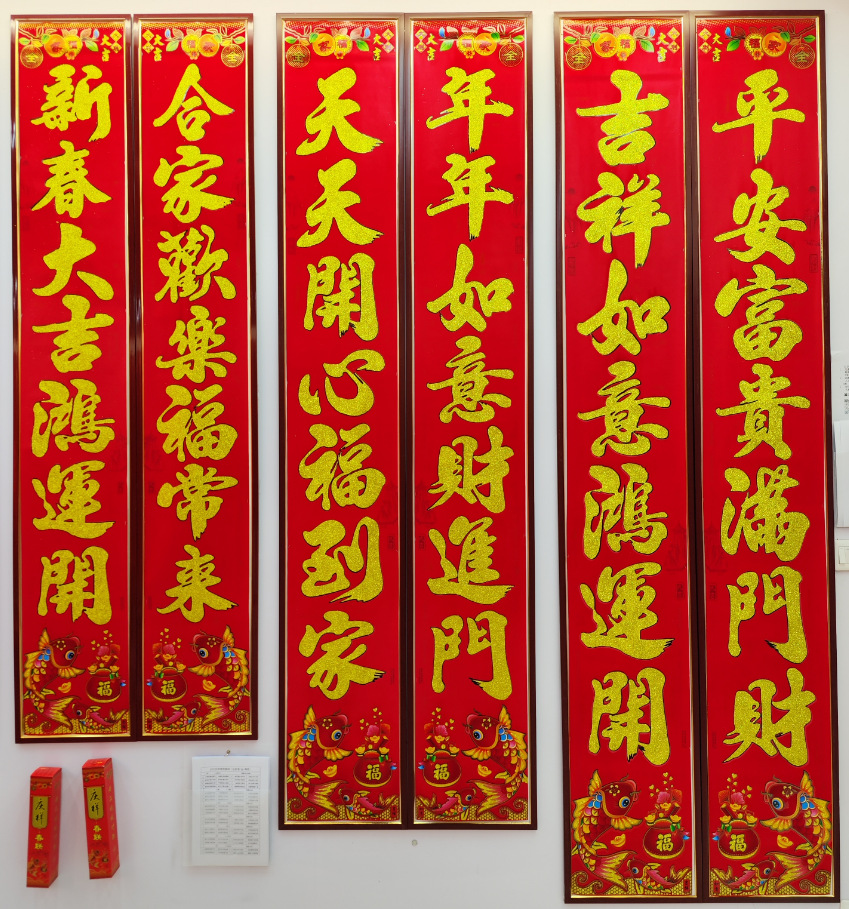 新春大吉鴻運開
合家歡樂福常来
天天開心福到家
年年如意財進門
吉祥如意鴻運開
平安富貴滿門財
大吉
大吉
大吉
大吉
大吉
大吉
福
福
福
福
福
福